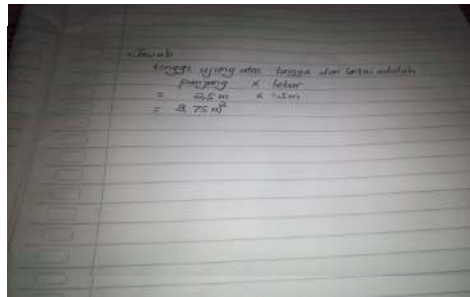 Jawab
tinggi ujung atas tangga dari lantai adalah
panjang × lebar
= 2,5 m × 1,5 m
= 3,75 m²